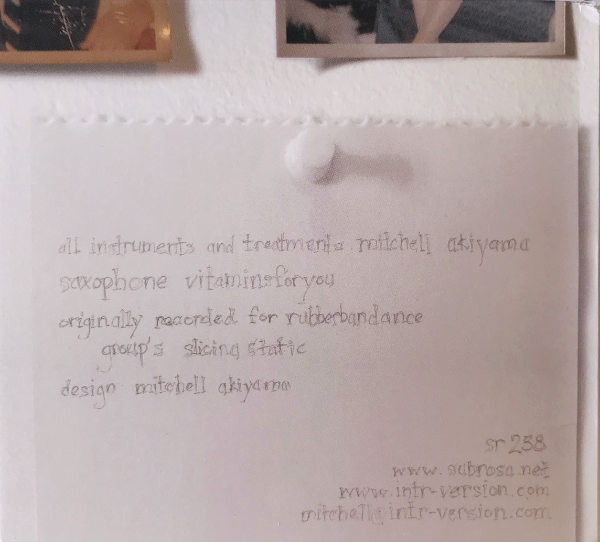 all instruments and treatments mitchell akiyama
saxophone vitaminsforyou
originally recorded for rubberbandance
group's slicing static
design mitchell akiyama
sr 258
www.subrosa.net
www.intr-version.com
mitchell@intr-version.com